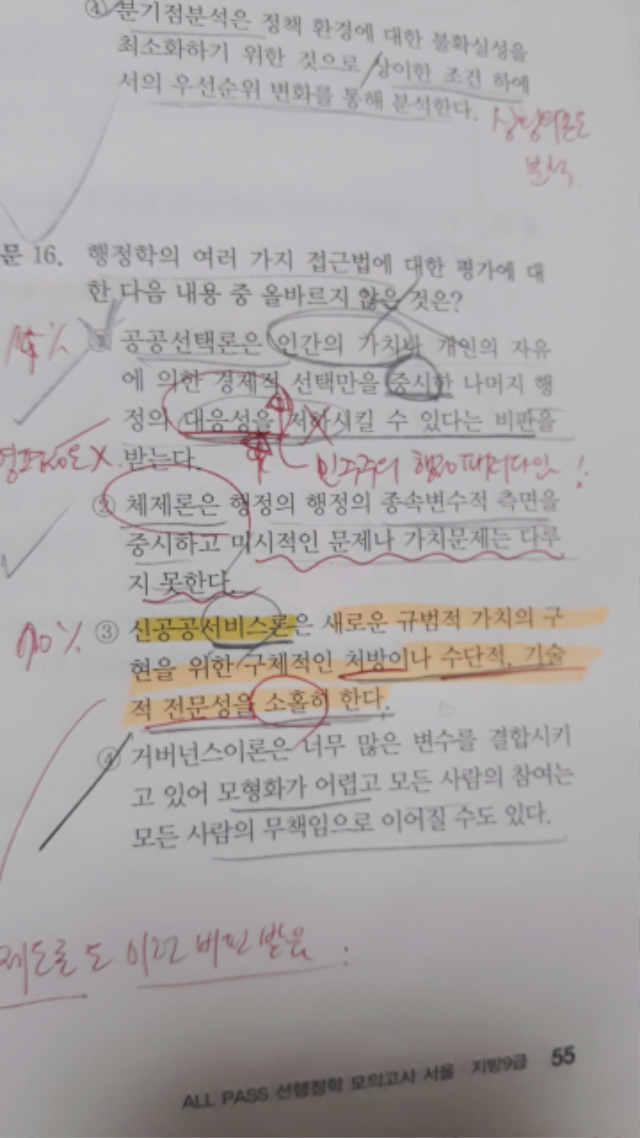 ④ 분기점분석은 정책 환경에 대한 불확실성을
최소화하기 위한 것으로 상이한 조건 하에
서의 우선순위 변화를 통해 분석한다.
분석.
문 16. 행정학의 여러 가지 접근법에 대한 평가에 대
한 다음 내용 중 올바르지 않은 것은?
공공선택론은 인간의 가치나 개인의 자유
에 의한 경제적 선택만을 중시한 나머지 행
정의 대응성을 저하시킬 수 있다는 비판을
받는다.
② 체제론은 행정의 행정의 종속변수적 측면을
중시하고 미시적인 문제나 가치문제는 다루
지 못한다.
90% ③ 신공공서비스론은 새로운 규범적 가치의 구
현을 위한 구체적인 처방이나 수단적, 기술
적 전문성을 소홀히 한다.
④ 거버넌스이론은 너무 많은 변수를 결합시키
고 있어 모형화가 어렵고 모든 사람의 참여는
모든 사람의 무책임으로 이어질 수도 있다.
제도론도 이런 비판 받음
ALL PASS 선행정학 모의고사 서울·지방9급 55